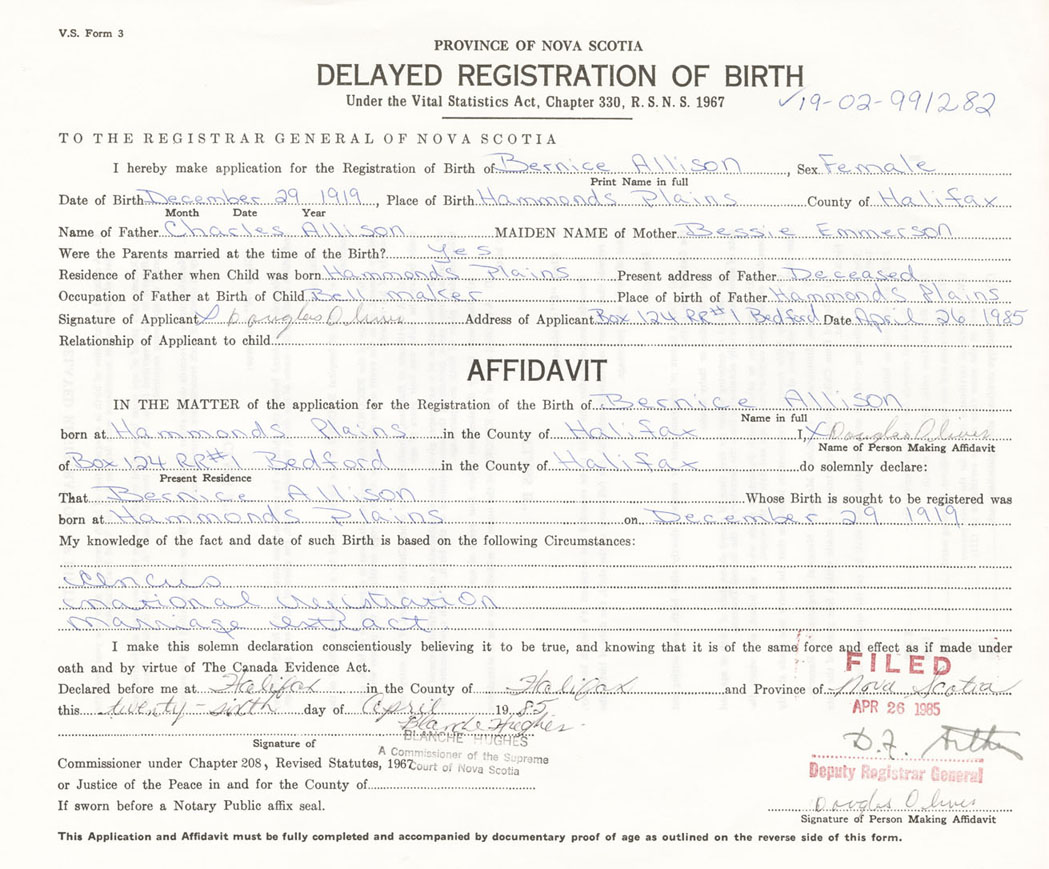 V.S. Form 3
PROVINCE OF NOVA SCOTIA
DELAYED REGISTRATION OF BIRTH
Under the Vital Statistics Act, Chapter 330, R. S. N. S. 1967 ✓19-02-991282
TO THE REGISTRAR GENERAL OF NOVA SCOTIA
I hereby make application for the Registration of Birth of Bernice Allison, Sex Female
Print Name in full
Date of Birth December 29 1919, Place of Birth Hammonds Plains County of Halifax
Month Date Year
Name of Father Charles Allison MAIDEN NAME of Mother Bessie Emmerson
Were the Parents married at the time of the Birth? Yes
Residence of Father when Child was born Hammonds Plains Present address of Father Deceased
Occupation of Father at Birth of Child Bell maker Place of birth of Father Hammonds Plains
Signature of Applicant X Douglas Oliver Address of Applicant Box 124 RR#1 Bedford Date April 26 1985
Relationship of Applicant to child
AFFIDAVIT
IN THE MATTER of the application for the Registration of the Birth of Bernice Allison
Name in full
born at Hammonds Plains in the County of Halifax I, X Douglas Oliver
Name of Person Making Affidavit
of Box 124 RR#1 Bedford in the County of Halifax do solemnly declare:
Present Residence
That Bernice Allison Whose Birth is sought to be registered was
born at Hammonds Plains on December 29 1919
My knowledge of the fact and date of such Birth is based on the following Circumstances:
Cencus
national registration
marriage extract
I make this solemn declaration conscientiously believing it to be true, and knowing that it is of the same force and effect as if made under
oath and by virtue of The Canada Evidence Act.
FILED
Declared before me at Halifax in the County of Halifax and Province of Nova Scotia
this twenty-sixth day of April 1985
APR 26 1985
Blanche Hughes
BLANCHE HUGHES
Signature of
A Commissioner of the Supreme
Commissioner under Chapter 208, Revised Statutes, 1967
Court of Nova Scotia
D.F.
Deputy Registrar General
or Justice of the Peace in and for the County of
If sworn before a Notary Public affix seal.
Douglas Oliver
Signature of Person Making Affidavit
This Application and Affidavit must be fully completed and accompanied by documentary proof of age as outlined on the reverse side of this form.